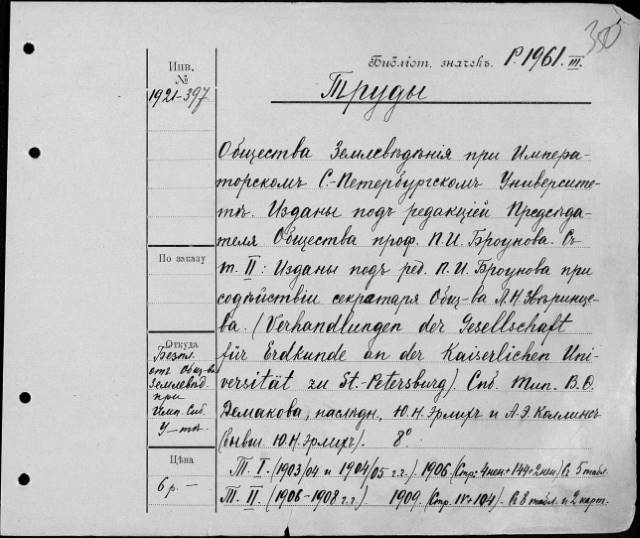 380
Библіот. значекъ. P.1961.III.
Инв.
№
1921-397
Труды
Общества Землевѣдѣнія при Импера-
торскомъ С.-Петербургскомъ Университе-
тѣ. Изданы подъ редакціей Предсѣда-
теля Общества проф. П.И. Броунова. Съ
т. II: Изданы подъ ред. П.И. Броунова при
содѣйствіи секретаря Общ-ва Л.Н. Звѣринце-
ва. (Verhandlungen der Gesellschaft
für Erdkunde an der Kaiserlichen Uni-
versität zu St.-Petersburg). Спб. Тип. В.Ѳ.
Демакова, наслѣдн. Ю.Н. Эрлихъ и А.Э. Коллинсъ
(бывш. Ю.Н. Эрлихъ). 8°
Т. I. (1903/04 и 1904/05 г.г.). 1906. (Стр: 4нен+149+2нен) Съ 5 табл.
Т. II. (1906-1908 г.г.). 1909. (Стр. IV+104). Съ 8 табл. и 2 карт.
По заказу
Откуда
Безпл.
отъ Общ-ва
Землевѣд.
при
Имп. Спб.
У-тѣ.
Цѣна
6 р. —